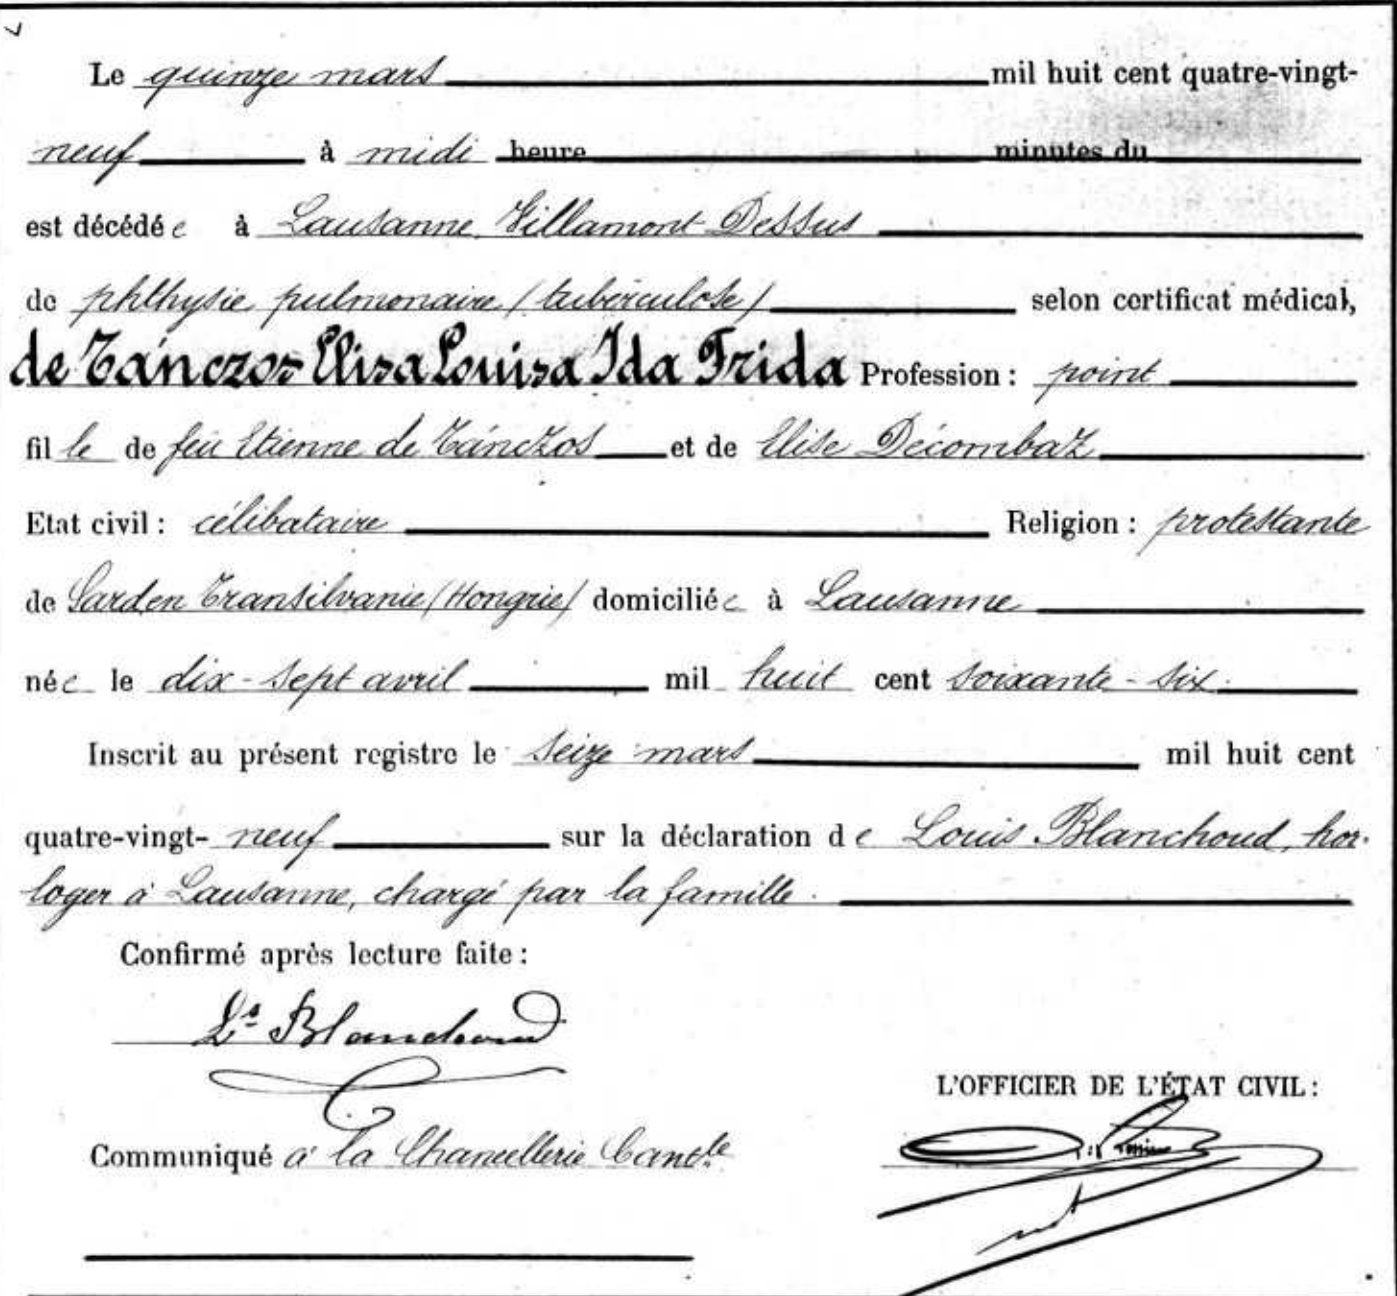 Le quinze mars mil huit cent quatre-vingt-
neuf à midi heure minutes du
est décédée à Lausanne, Villamont Dessus
de phthysie pulmonaire (tuberculose) selon certificat médical,
de Tánczos Elisa Louisa Ida Frida Profession : point
fille de feu Etienne de Tánczos et de Elise Décombaz
Etat civil : célibataire Religion : protestante
de Sarden Transilvanie (Hongrie) domiciliée à Lausanne
née le dix-sept avril mil huit cent soixante-six.
Inscrit au présent registre le seize mars mil huit cent
quatre-vingt-neuf sur la déclaration de Louis Blanchoud, hor-
loger à Lausanne, chargé par la famille.
Confirmé après lecture faite :
Ls Blanchoud
L'OFFICIER DE L'ÉTAT CIVIL :
Communiqué à la Chancellerie Cantle